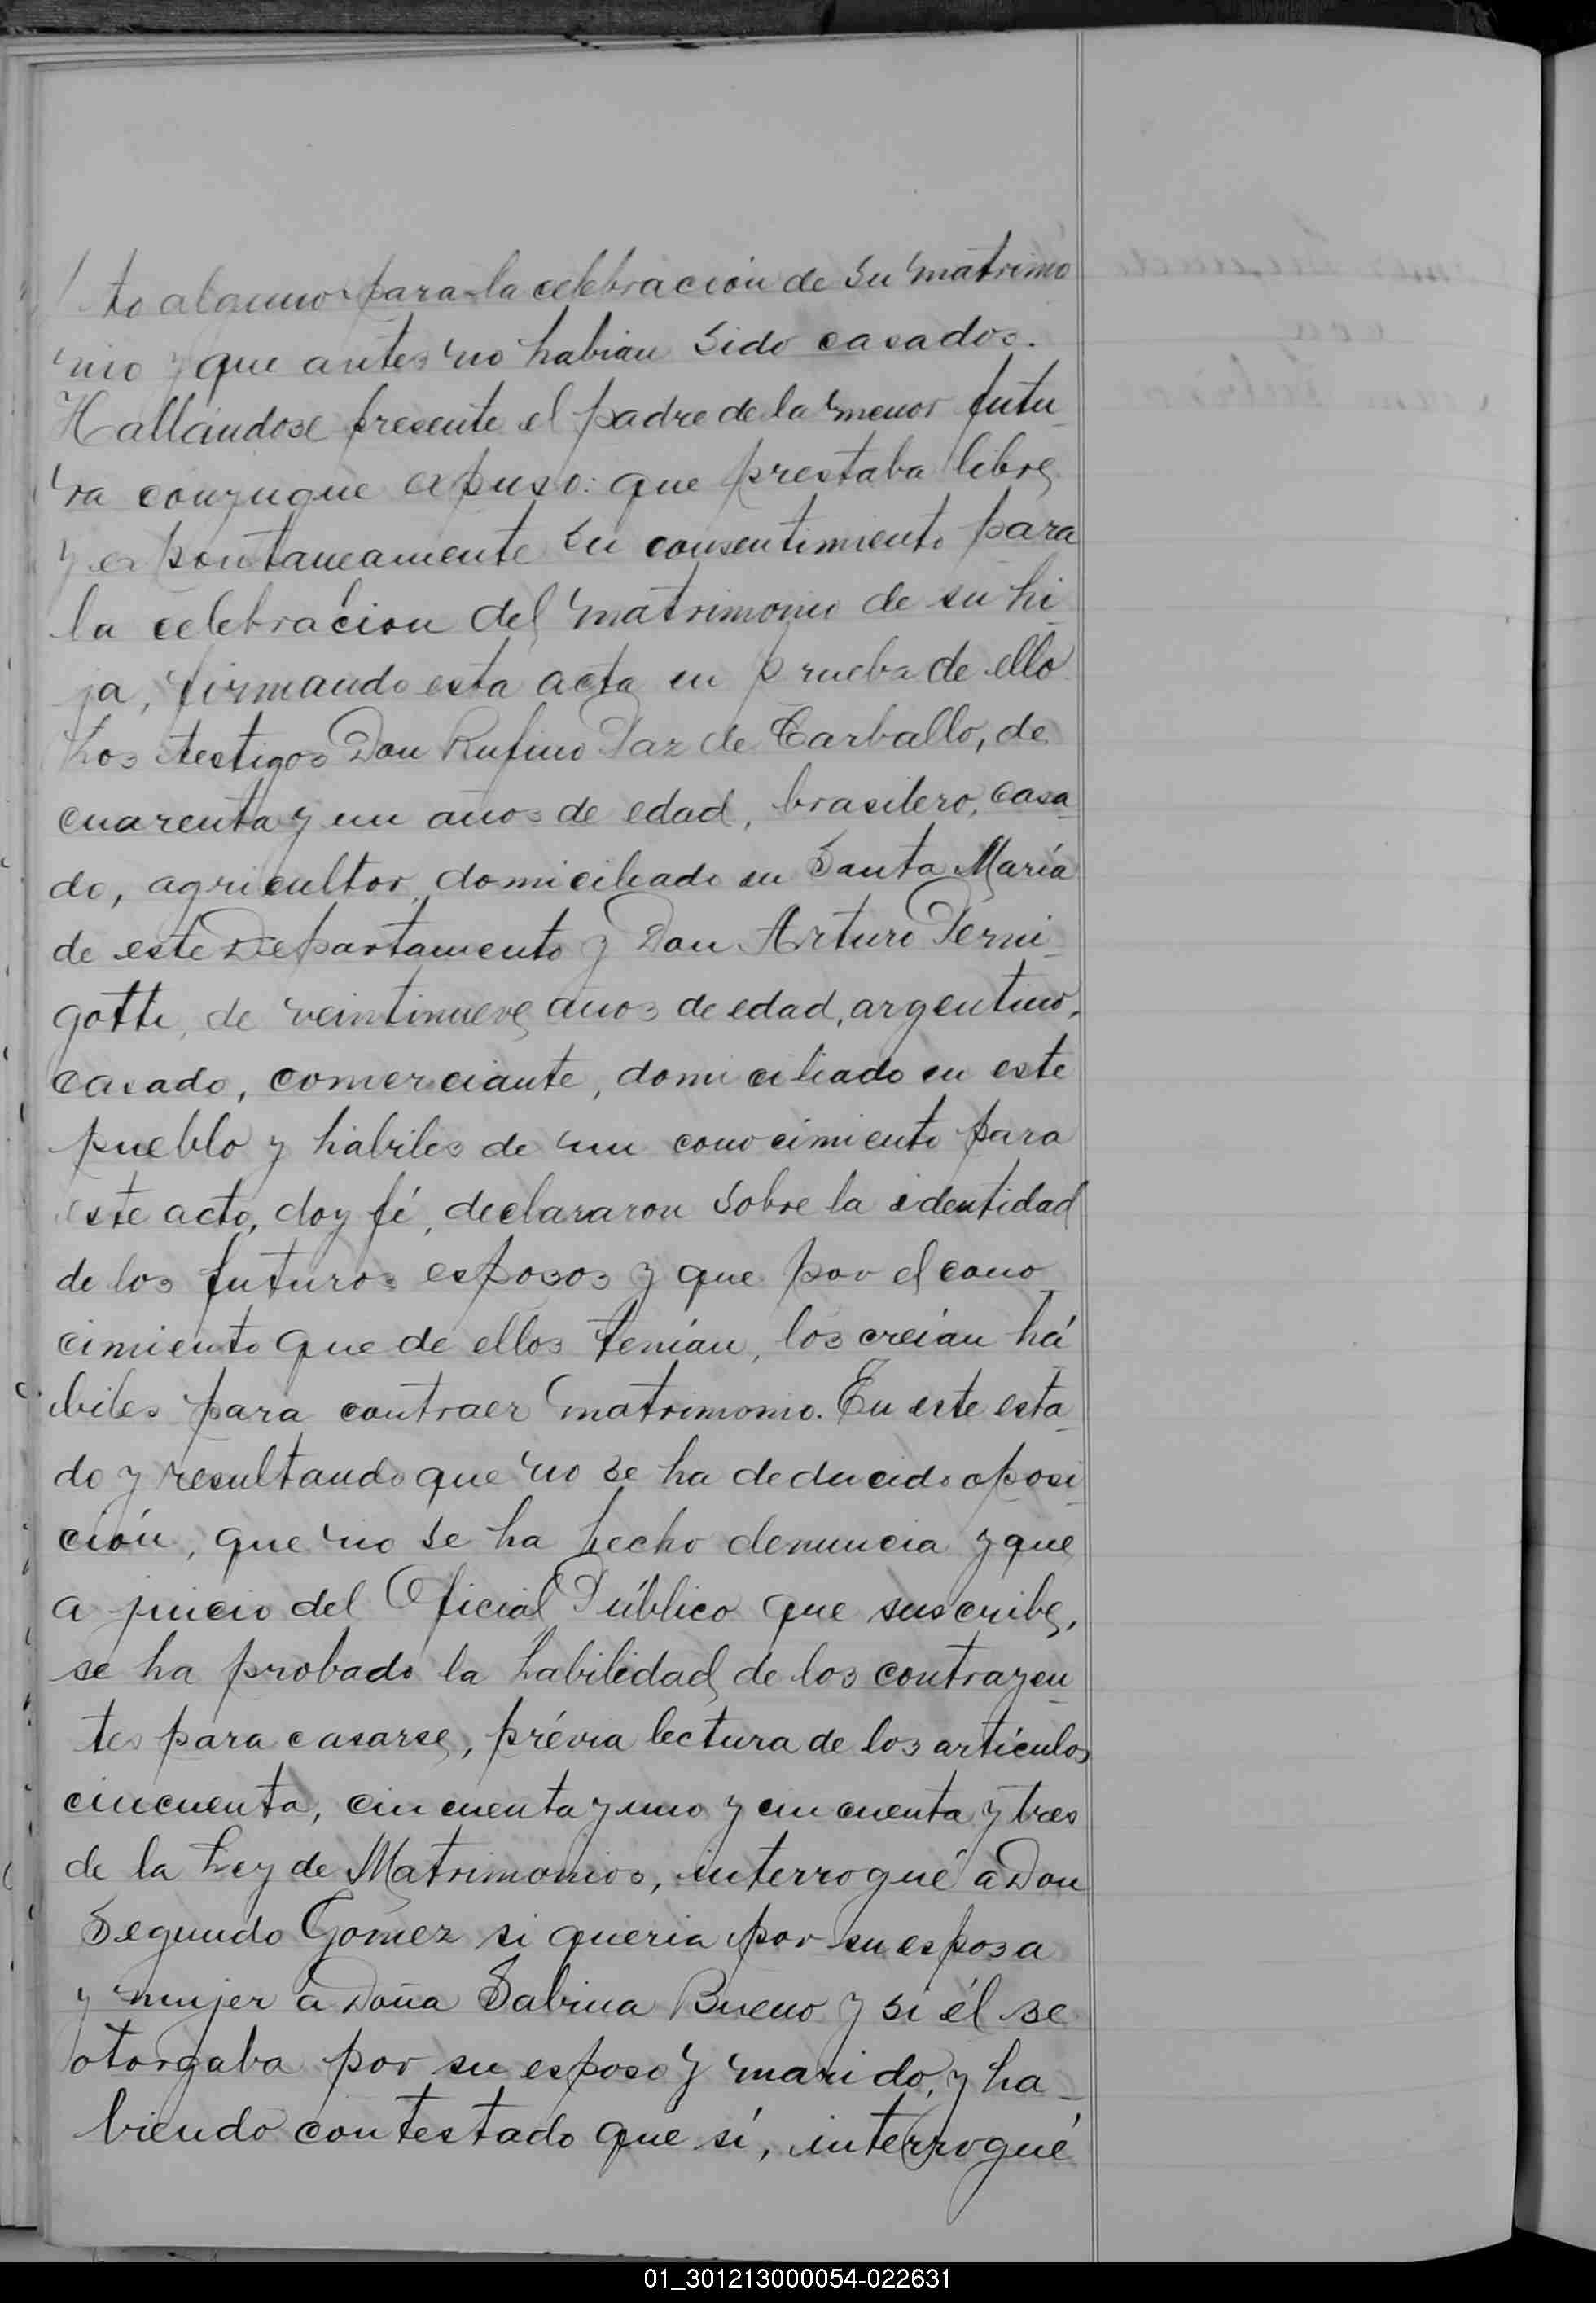 to alguno para la celebración de su matrimo
nio y que antes no habian sido casados.
Hallándose presente el padre de la menor futu-
ra conyugue expuso: que prestaba libre
y expontaneamente su consentimiento para
la celebración del matrimonio de su hi-
ja, firmando esta acta en prueba de ello.
Los testigos Don Rufino Paz de Carballo, de
cuarenta y un años de edad, brasilero, casa-
do, agricultor, domiciliado en Santa María
de este Departamento y Don Arturo Perni-
gotti, de veintinueve años de edad, argentino,
casado, comerciante, domiciliado en este
pueblo y hábiles de mi conocimiento para
este acto, doy fé, declararon sobre la identidad
de los futuros esposos y que por el cono-
cimiento que de ellos tenían, los creían há-
biles para contraer matrimonio. En este esta-
do y resultando que no se ha deducido oposi-
ción, que no se ha hecho denuncia y que
a juicio del Oficial Público que suscribe,
se ha probado la habilidad de los contrayen-
tes para casarse, prévia lectura de los artículos
cincuenta, cincuenta y uno y cincuenta y tres
de la Ley de Matrimonios, interrogué a Don
Segundo Gómez si queria por su esposa
y mujer a Doña Sabina Bueno y si él se
otorgaba por su esposo y marido, y ha-
biendo contestado que sí, interrogué
01_301213000054-022631